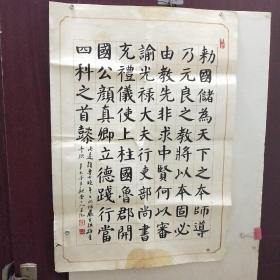 勅國儲為天下之本師導
乃元良之教將以本固必
由教先非求中賢何以審
諭光禄大夫行吏部尚書
充禮儀使上柱國魯郡開
國公顔真卿立德踐行當
四科之首懿